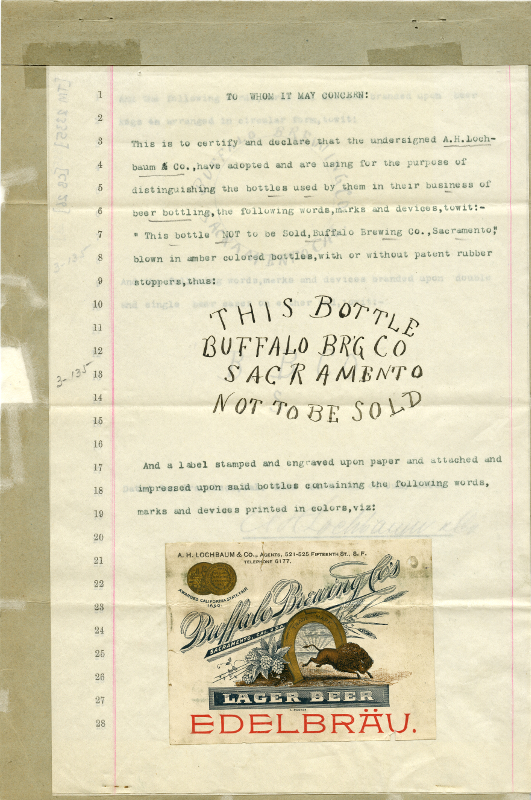 TO WHOM IT MAY CONCERN:
This is to certify and declare that the undersigned A.H.Loch-
baum & Co.,have adopted and are using for the purpose of
distinguishing the bottles used by them in their business of
beer bottling,the following words,marks and devices,towit:-
" This bottle NOT to be Sold,Buffalo Brewing Co.,Sacramento",
blown in amber colored bottles,with or without patent rubber
stoppers,thus:
THIS BOTTLE
BUFFALO BRG CO
SACRAMENTO
NOT TO BE SOLD
3-135
And a label stamped and engraved upon paper and attached and
impressed upon said bottles containing the following words,
marks and devices printed in colors,viz:
A. H. LOCHBAUM & CO., AGENTS, 521-525 FIFTEENTH ST., S. F.
TELEPHONE 6177.
AWARDED CALIFORNIA STATE FAIR
1890.
Buffalo Brewing Co's
SACRAMENTO, CAL. U.S.A.
LAGER BEER
EDELBRÄU.
1
2
3
4
5
6
7
8
9
10
11
12
13
14
15
16
17
18
19
20
21
22
23
24
25
26
27
28